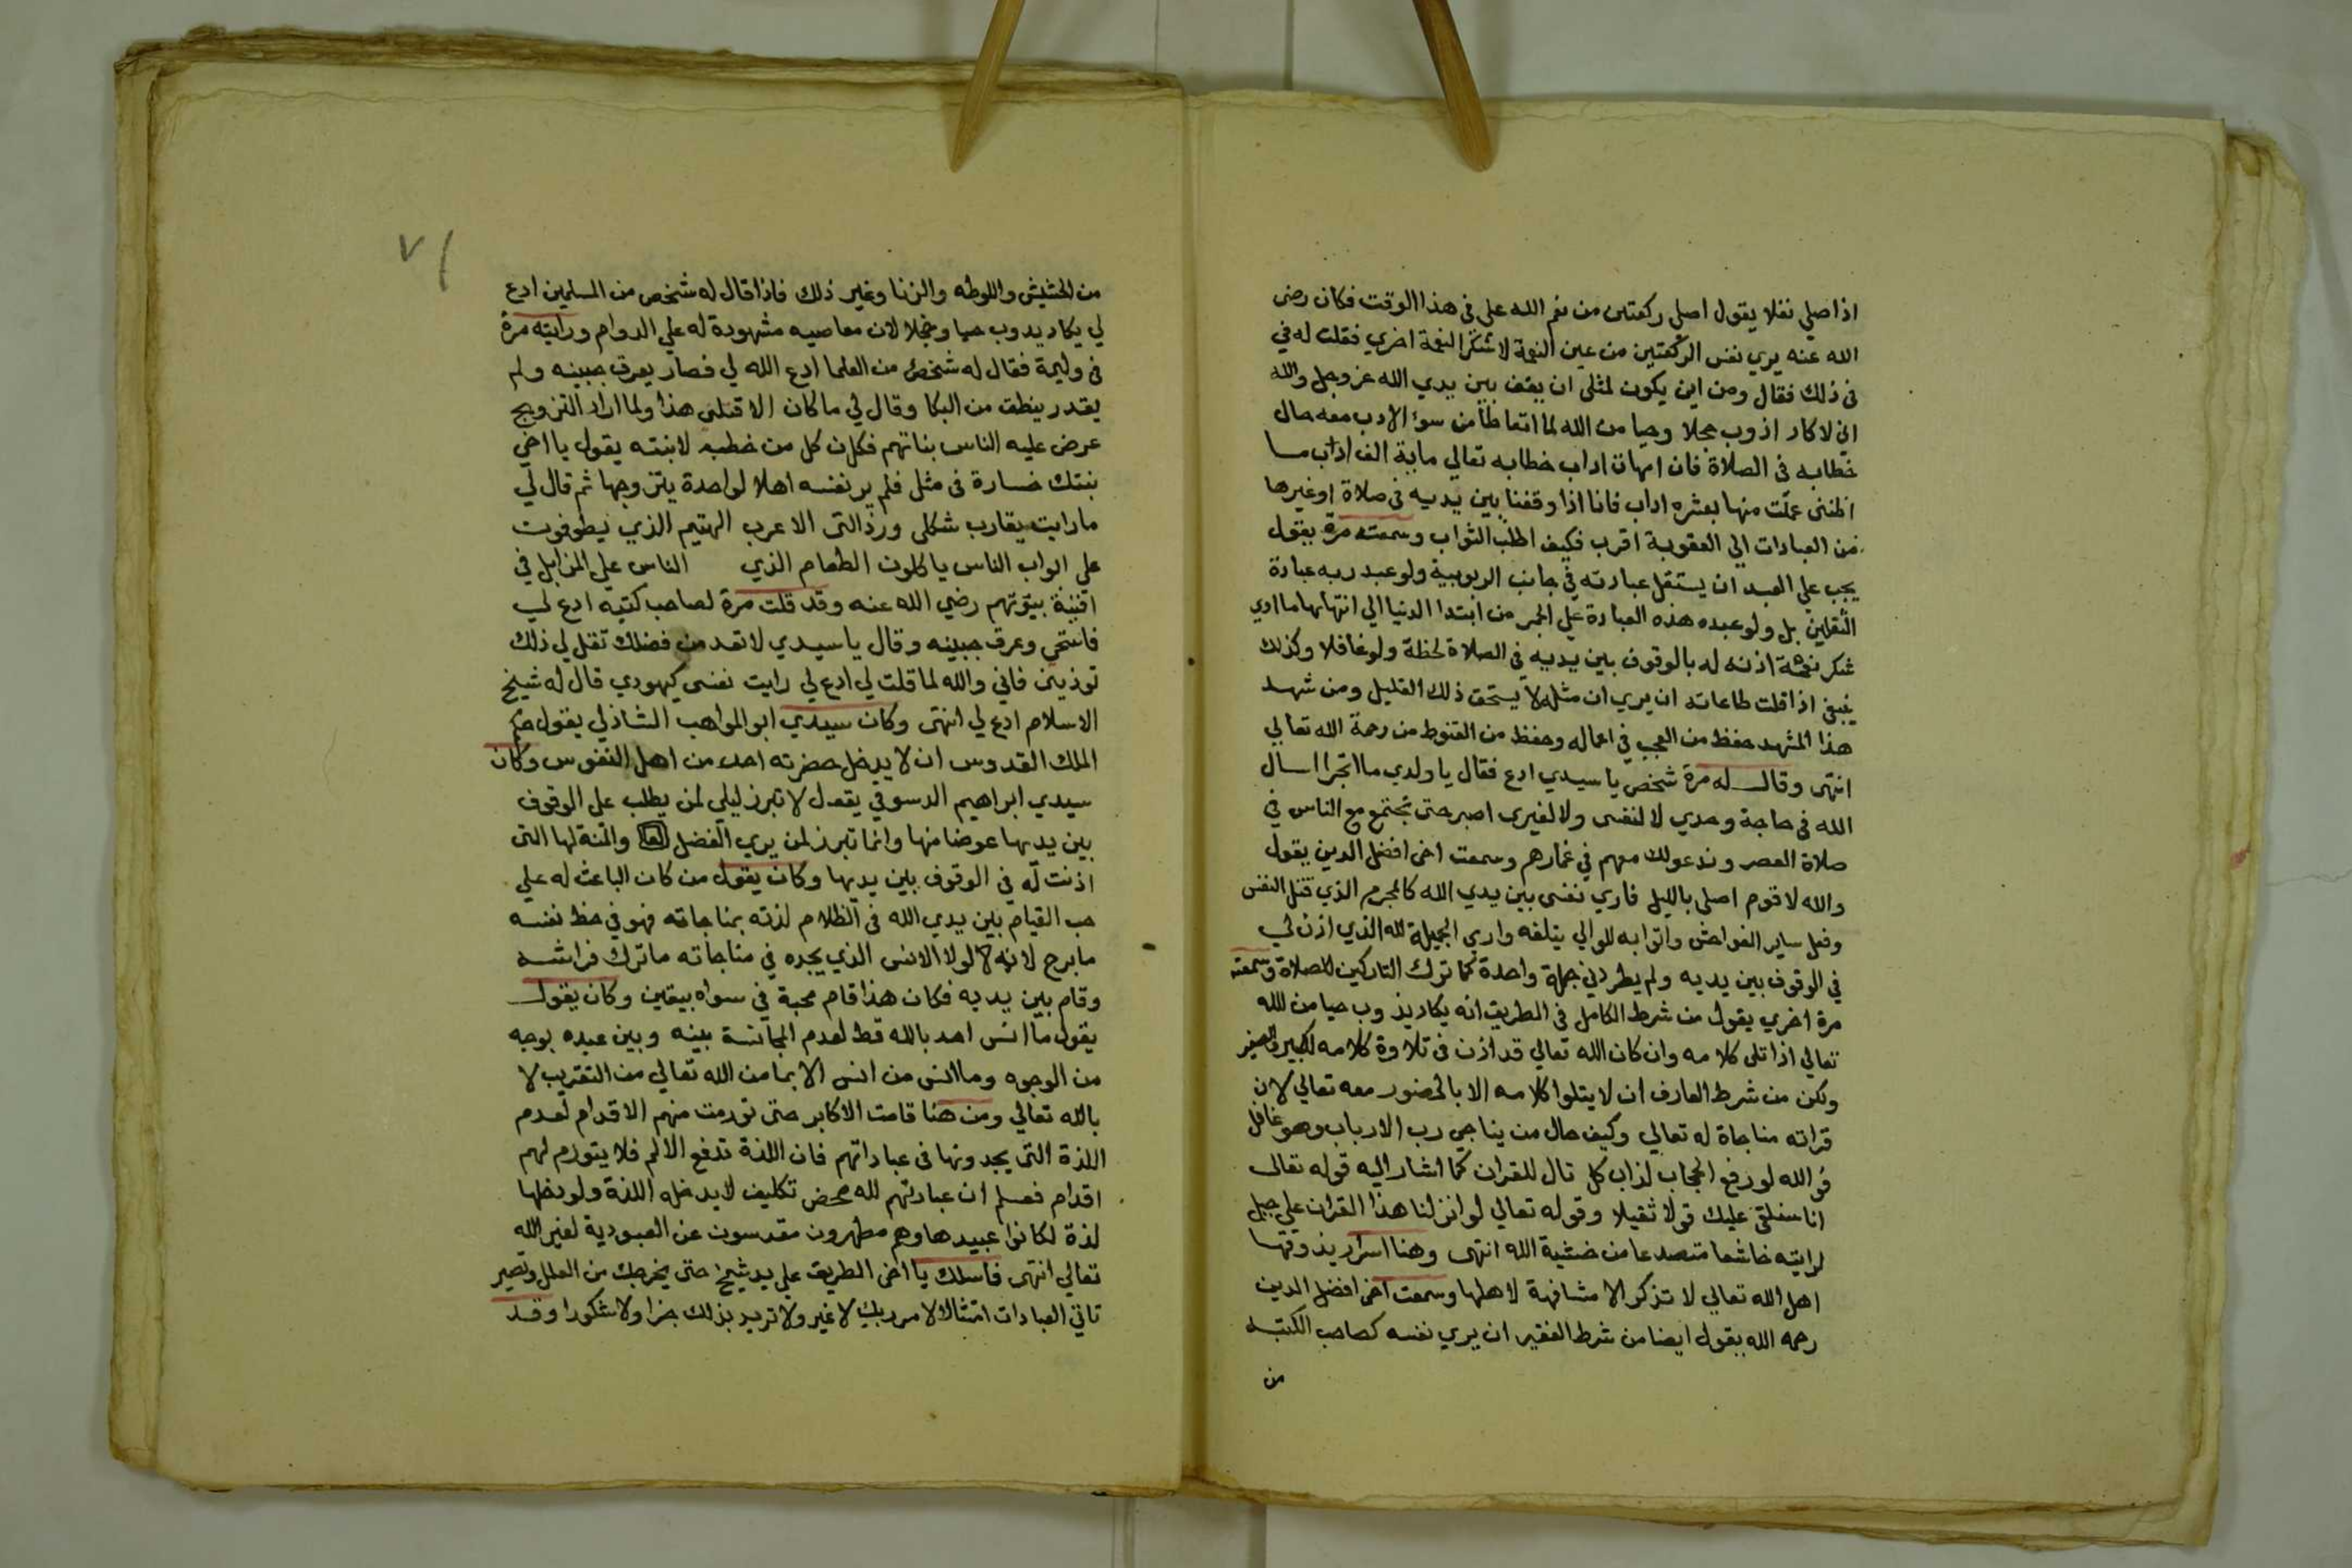 اذا صلي نفلا يقول اصلي ركعتين من نعم الله علي في هذا الوقت فكان رضي
الله عنه يري نفس الركعتين من عين النعمة لا شكرا لنعمة اخري فقلت له في
في ذلك فقال ومن اين يكون لمثلي ان يقف بين يدي الله عز وجل والله
اني لاكاد اذوب خجلا وحيا من الله لما اتعاطاه من سوء الادب معه حال
خطابه في الصلاة فان امهات اداب خطابه تعالي ماية الف اداب ما
اظنني عملت منها بعشره اداب فانا اذا وقفنا بين يديه في صلاة او غيرها
من العبادات الي العقوبة اقرب فكيف اطلب الثواب وسمعته مرة يقول
يجب علي العبد ان يستقل عبادته في جانب الربوبية ولو عبد ربه عبادة
الثقلين بل ولو عبده هذه العبادة علي الجمر من ابتدا الدنيا الي انتهايها ما ادي
شكر نعمة اذنه له بالوقوف بين يديه في الصلاة لحظة ولو غافلا وكذلك
ينبغي اذا قلت طاعاته ان يري ان مثله لا يستحق ذلك القليل ومن شهد
هذا المشهد حفظ من العجب في اعماله وحفظ من القنوط من رحمة الله تعالي
انتهي وقال له مرة شخص يا سيدي ادع فقال يا ولدي ما اتجرا اسال
الله في حاجة وحدي لا لنفسي ولا لغيري اصبر حتي نجتمع مع الناس في
صلاة العصر وندعو لك معهم في غمارهم وسمعت اخي افضل الدين يقول
والله لاقوم اصلي بالليل فاري نفسي بين يدي الله كالمجرم الذي قتل النفس
وفعل ساير الفواحش واتوا به للوالي يتلفه واري الجميلة لله الذي اذن لي
في الوقوف بين يديه ولم يطردني جملة واحدة كما ترك التاركين للصلاة وسمعته
مرة اخري يقول من شرط الكامل في الطريق انه يكاد يذوب حيا من الله
تعالي اذا تلي كلامه وان كان الله تعالي قد اذن في تلاوة كلامه للكبير والصغير
ولكن من شرط العارف ان لا يتلوا كلامه الا بالحضور معه تعالي لان
قراته مناجاة له تعالي وكيف حال من يناجي رب الارباب وهو غافل
فو الله لو رفع الحجاب لذاب كل تال للقران كما اشار اليه قوله تعالي
انا سنلقي عليك قولا ثقيلا وقوله تعالي لو انزلنا هذا القران علي جبل
لرايته خاشعا متصدعا من خشية الله انتهي وهنا اسرار يذوقها
اهل الله تعالي لا تذكر الا مشافهة لاهلها وسمعت اخي افضل الدين
رحمه الله يقول ايضا من شرط الفقير ان يري نفسه كصاحب الكتبه
من
٧١
من الحشيش واللوطه والزنا وغير ذلك فاذا قال له شخص من المسلمين ادع
لي يكاد يدوب حيا وخجلا لان معاصيه مشهودة له علي الدوام ورايته مرة
في وليمة فقال له شخص من العلما ادع الله لي فصار يعرق جبينه ولم
يقدر ينطق من البكا وقال لي ما كان الا قتلني هذا ولما اراد التزويج
عرض عليه الناس بناتهم فكان كل من خطبه لابنته يقول يا اخي
بنتك خسارة في مثلي فلم ير نفسه اهلا لواحدة يتزوجها ثم قال لي
ما رايت يقارب شكلي ورذالتي الا عرب الهتيم الذي يطوفوت
علي ابواب الناس ياكلون الطعام الذي الناس علي المزابل في
افنية بيوتهم رضي الله عنه وقد قلت مرة لصاحب كتبه ادع لي
فاستحي وعرق جبينه وقال يا سيدي لا تعد من فضلك تقل لي ذلك
توذيني فاني والله لما قلت لي ادع لي رايت نفسي كيهودي قال له شيخ
الاسلام ادع لي انتهي وكان سيدي ابو المواهب الشاذلي يقول حكم
الملك القدوس ان لا يدخل حضرته احد من اهل النفوس وكان
سيدي ابراهيم الدسوقي يقول لا تبرز ليلي لمن يطلب علي الوقوف
بين يديها عوضا منها وانما تبرز لمن يري الفضل لها والمنة لها التي
اذنت له في الوقوف بين يديها وكان يقول من كان الباعث له علي
حب القيام بين يدي الله في الظلام لذته بمناجاته فهو في حظ نفسه
ما برح لانه لا لولا الانس الذي يجده في مناجاته ما ترك فراشه
وقام بين يديه فكان هذا قام محبة في سواه بيقين وكان يقول
يقول ما انس احد بالله قط لعدم المجانسة بينه وبين عبده بوجه
من الوجوه وما انس من انس الا بما من الله تعالي من التقريب لا
بالله تعالي ومن هنا قامت الاكابر حتي تورمت منهم الاقدام لعدم
اللذة التي يجدونها في عباداتهم فان اللذة تدفع الالم فلا يتورم لهم
اقدام فعلم ان عبادتهم لله محض تكليف لا يدخله اللذة ولو دخلها
لذة لكانوا عبيدها وهم مطهرون مقدسون عن العبودية لغير الله
تعالي انتهي فاسلك يا اخي الطريق علي يد شيخ حتي يخرجك من العلل وتصير
تاتي العبادات امتثالا لامر ربك لا غير ولا تريد بذلك جزا ولا شكورا وقد